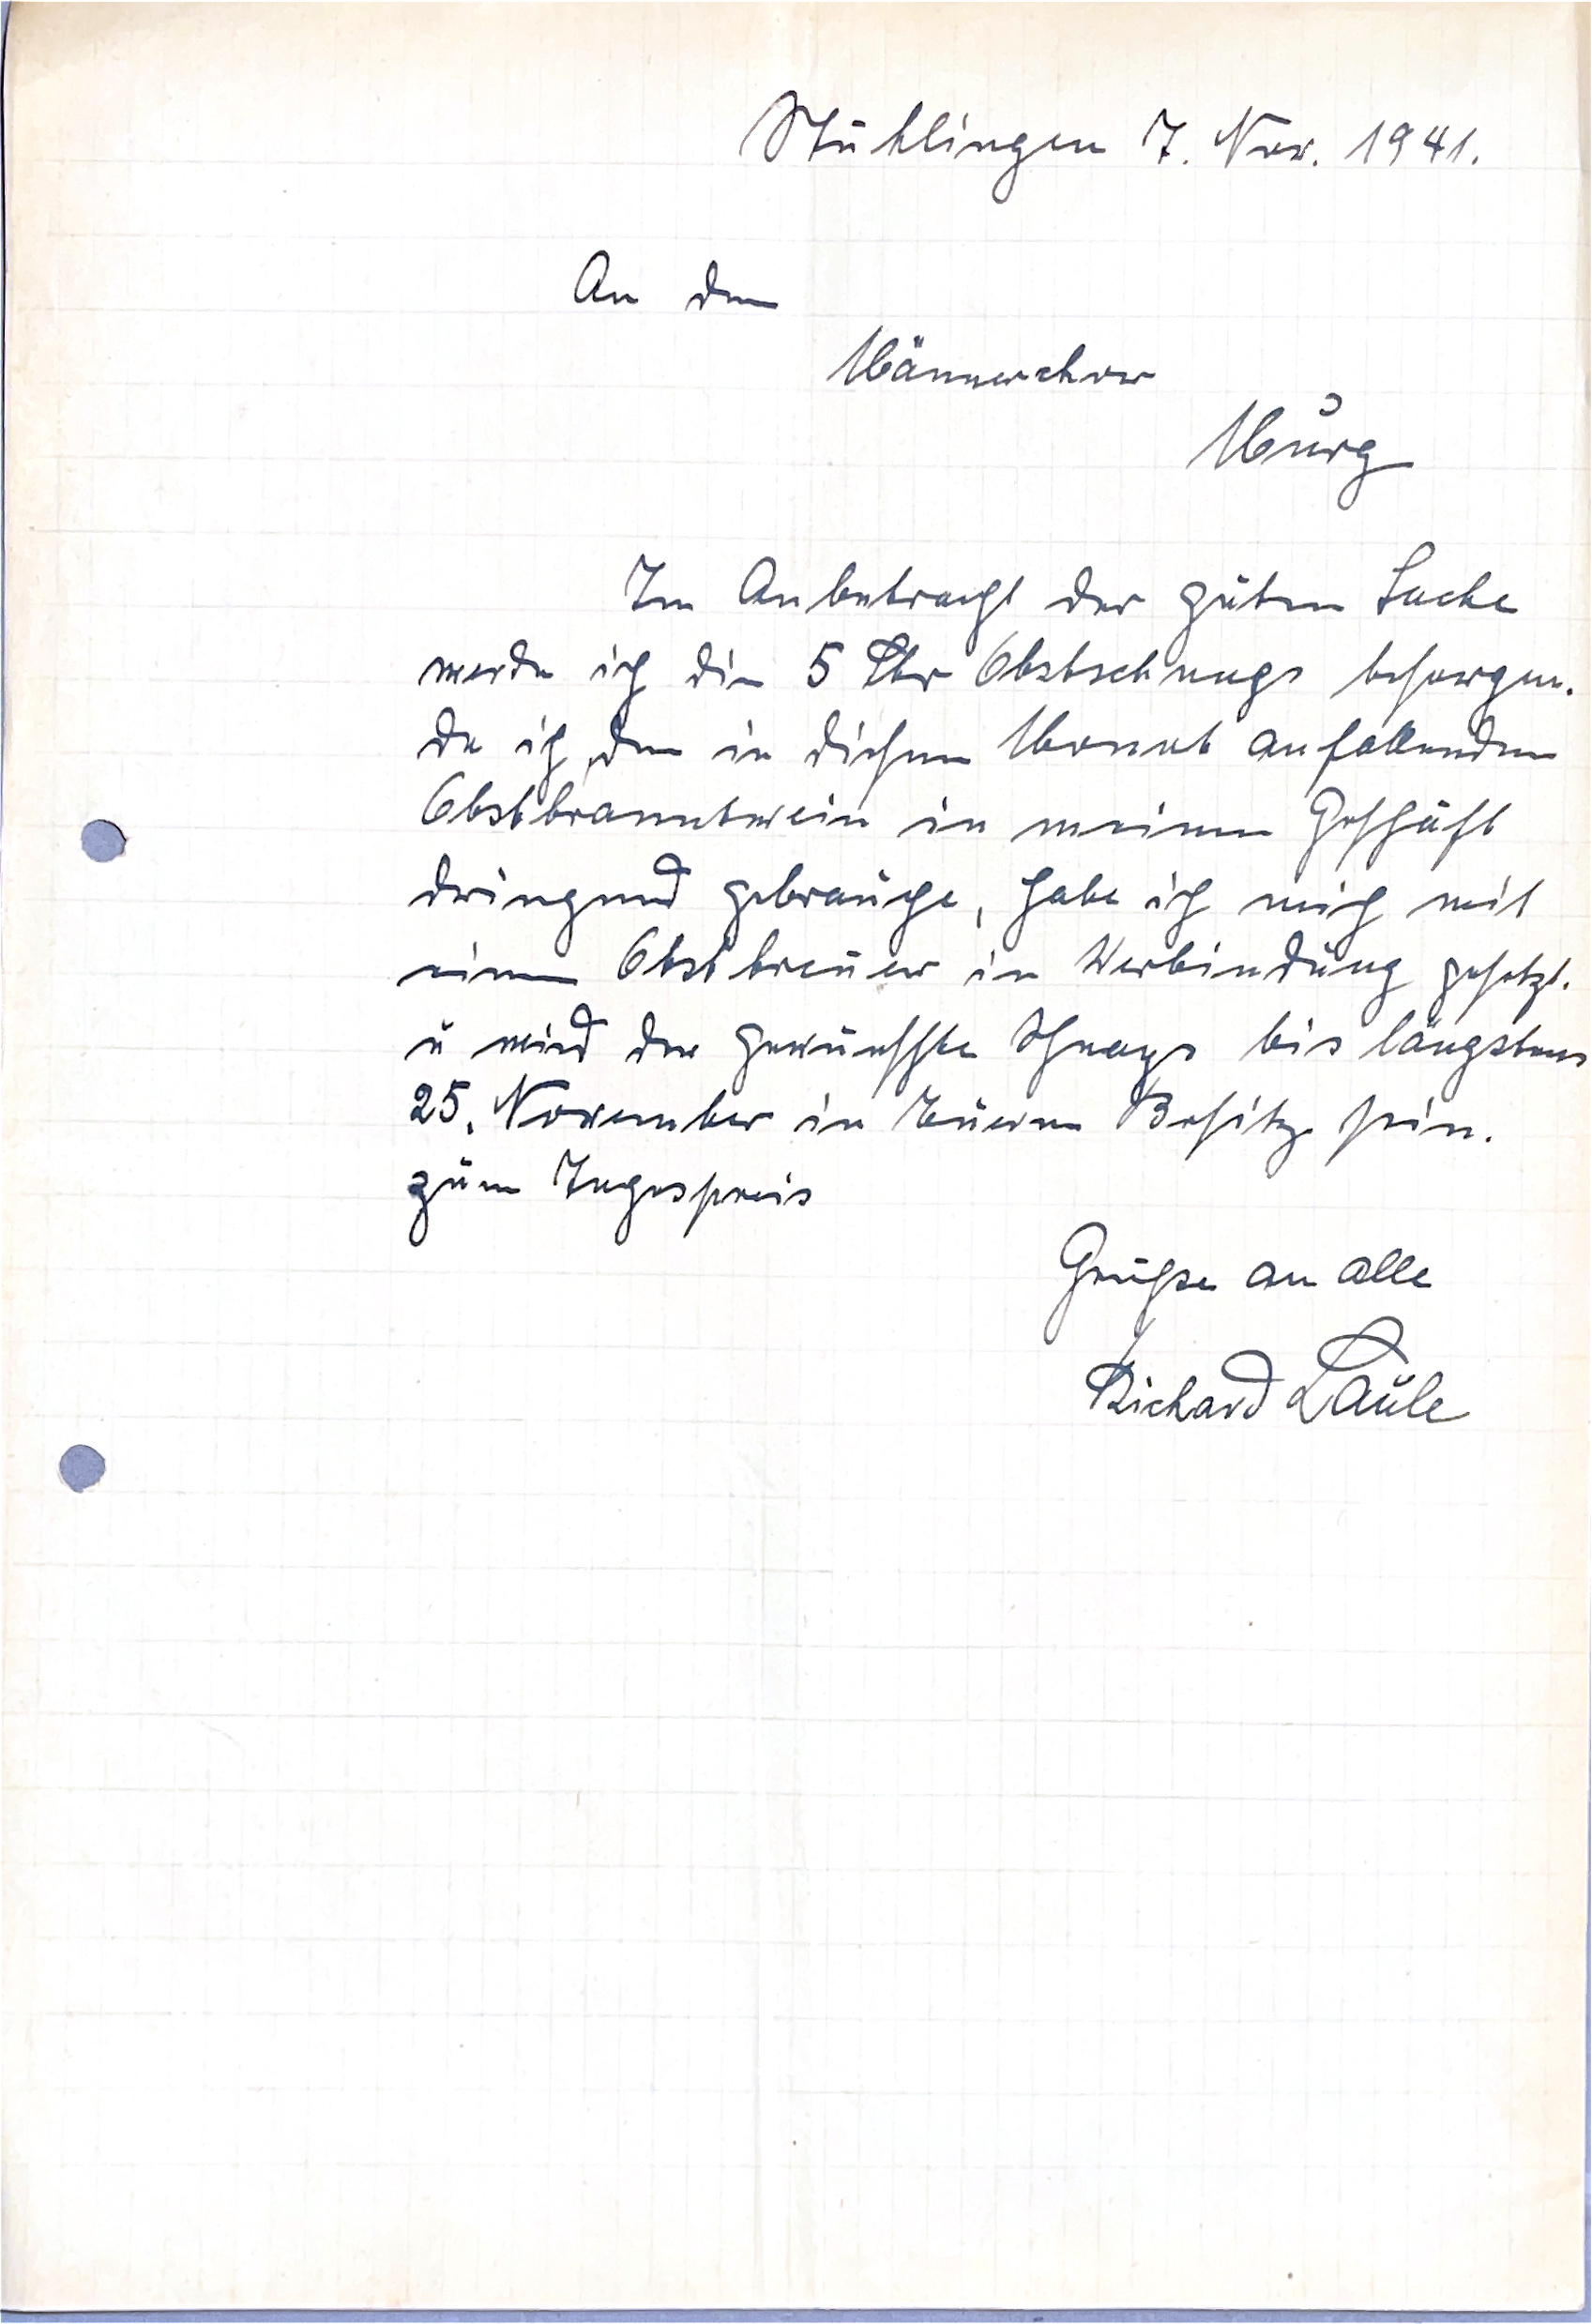 Stühlingen 7. Nov. 1941.
An den
Männerchor
Murg
Im Anbetracht der guten Sache
werde ich die 5 Ltr Obstschnaps besorgen.
da ich den in diesem Monat anfallenden
Obstbranntwein in meinem Geschäft
dringend gebrauche, habe ich mich mit
einem Obstbreuer in Verbindung gesetzt.
u wird der gewünschte Schnaps bis längstens
25. November in Euerem Besitze sein.
zum Tagespreis
Grüsse an alle
Richard Läule